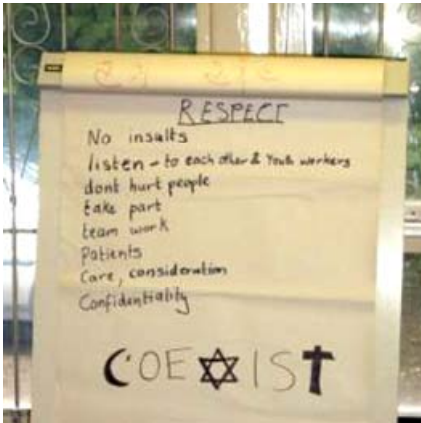 RESPECT
No insults
listen - to each other & Youth workers
dont hurt people
take part
team work
Patients
Care, consideration
Confidentiality
COEXIST